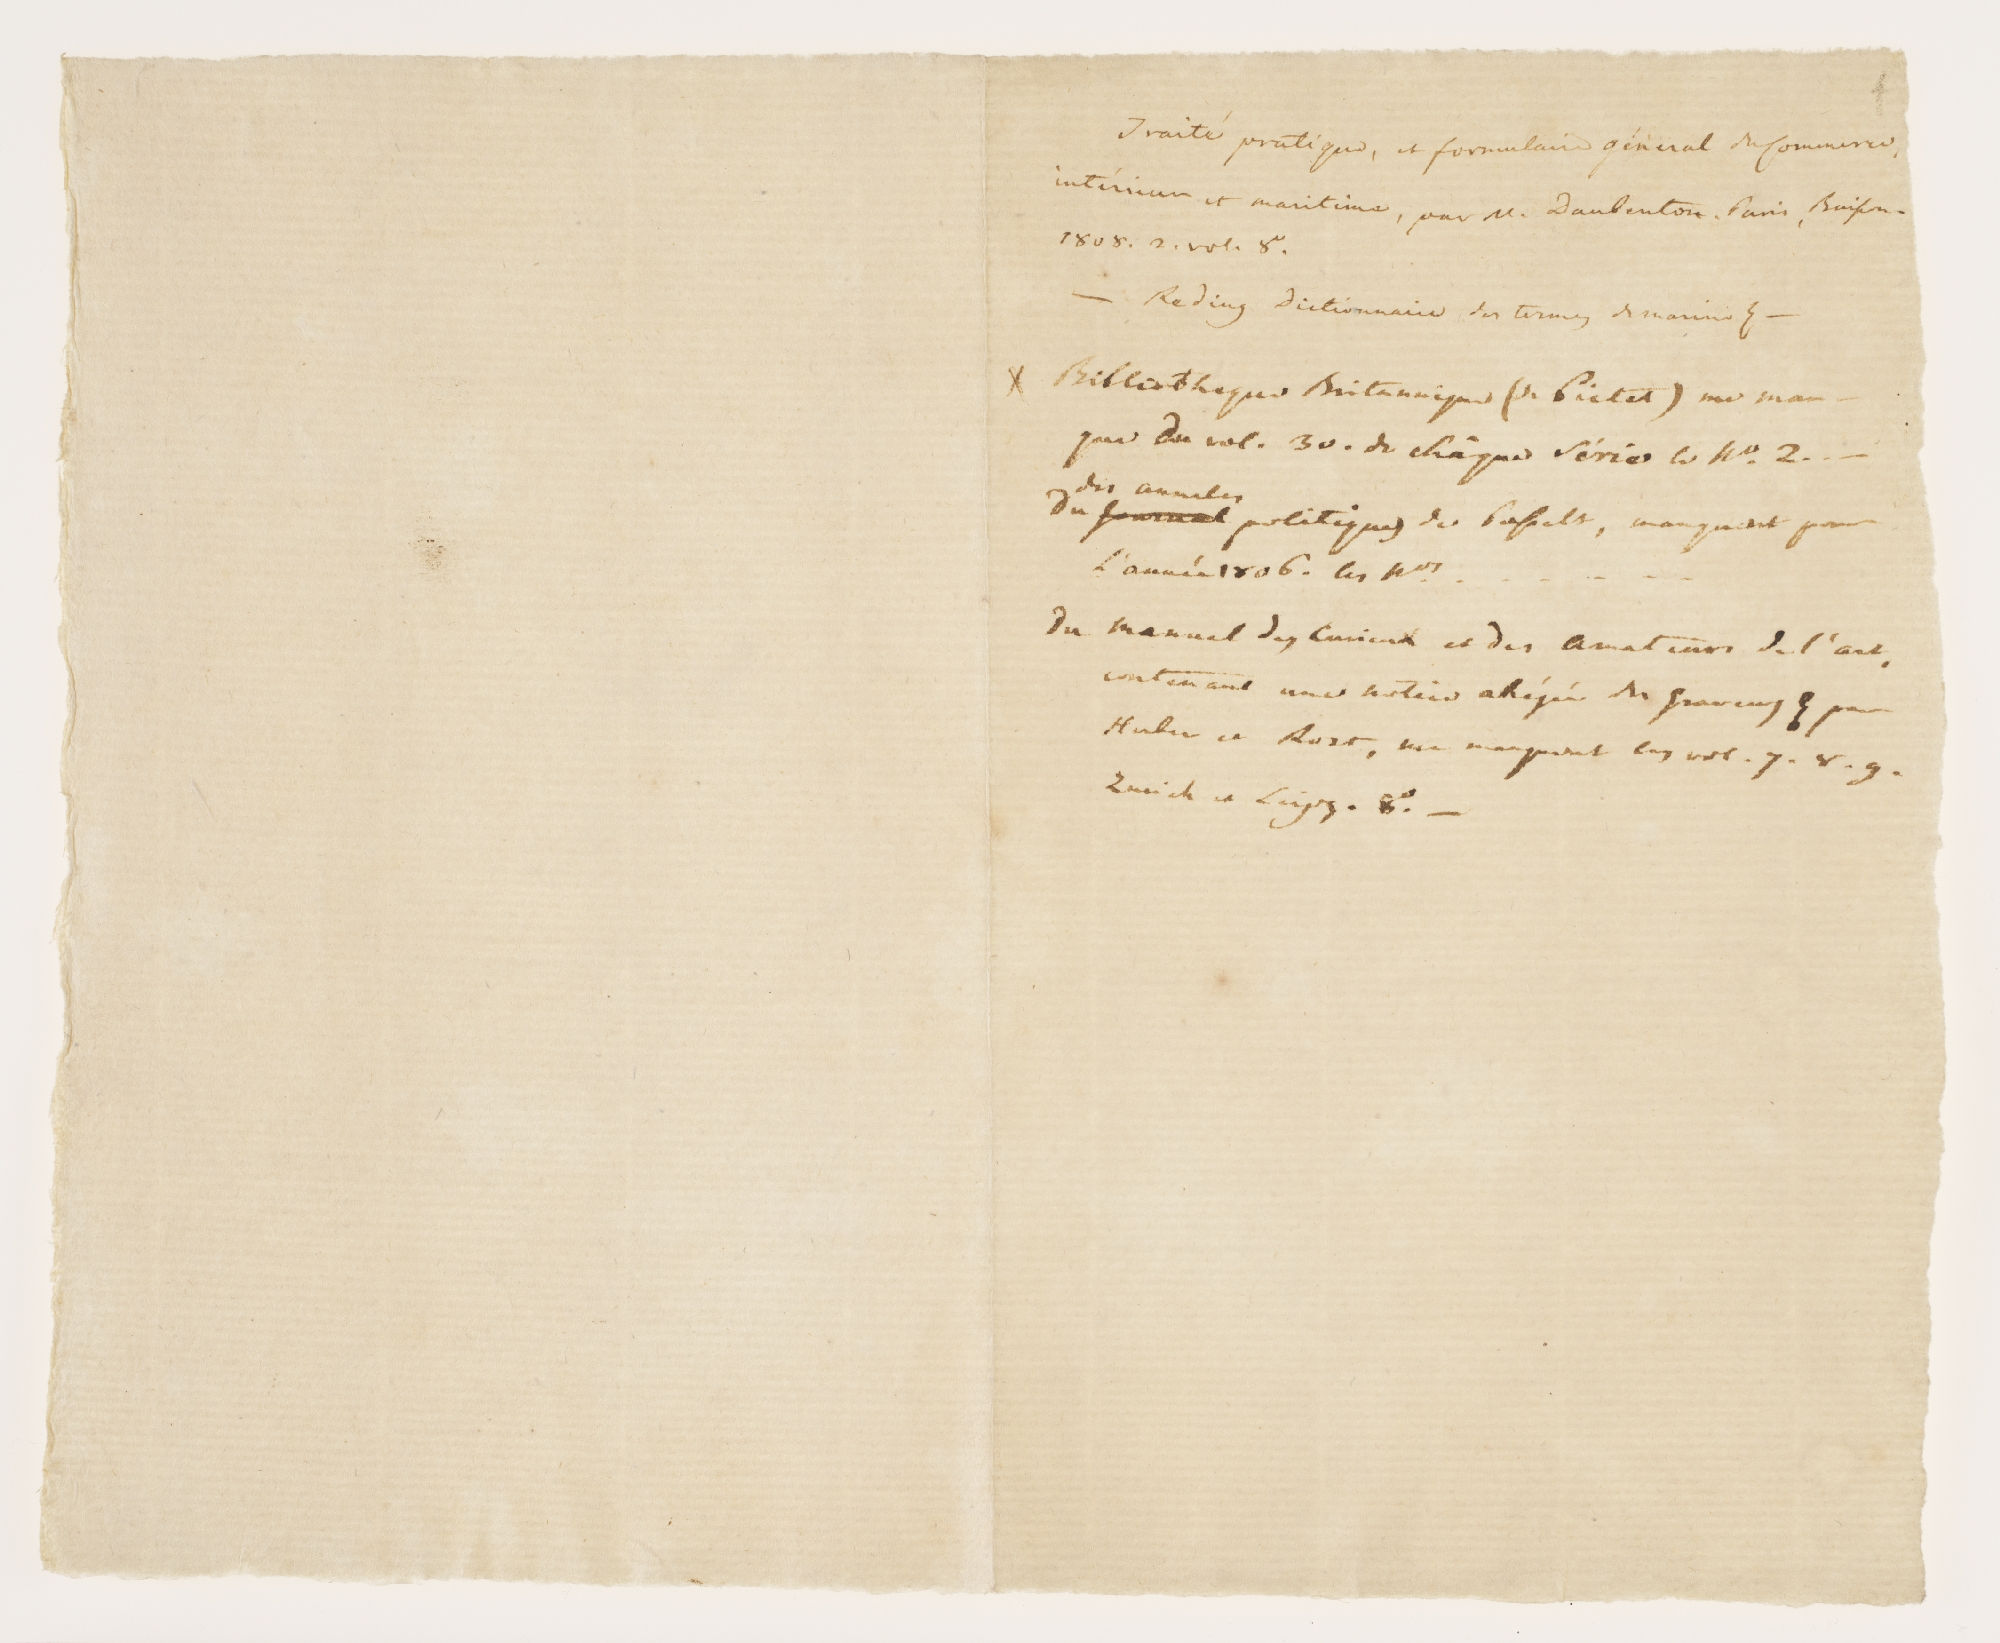 1
Traité pratique, et formulaire général du Commerce,
intérieur et maritime, par M. Daubenton. Paris, Buisson.
1808. 2. vol. 8º.
— Reding Dictionnaire des termes de marine —
X Bibliotheque Britannique (de Pictet) me man-
que du vol. 30. de châque Série le Nº. 2. . —
des annales
Du journal politiques de Posselt, manquent pour
l'année 1806. les Nos. . . - - - -
Du Manuel des Curieux et des Amateurs de l'art,
contenant une notice abégée des graveurs par
Huber et Rost, me manquent les vol. 7. 8. 9.
Zurich et Leipz. 8º. —